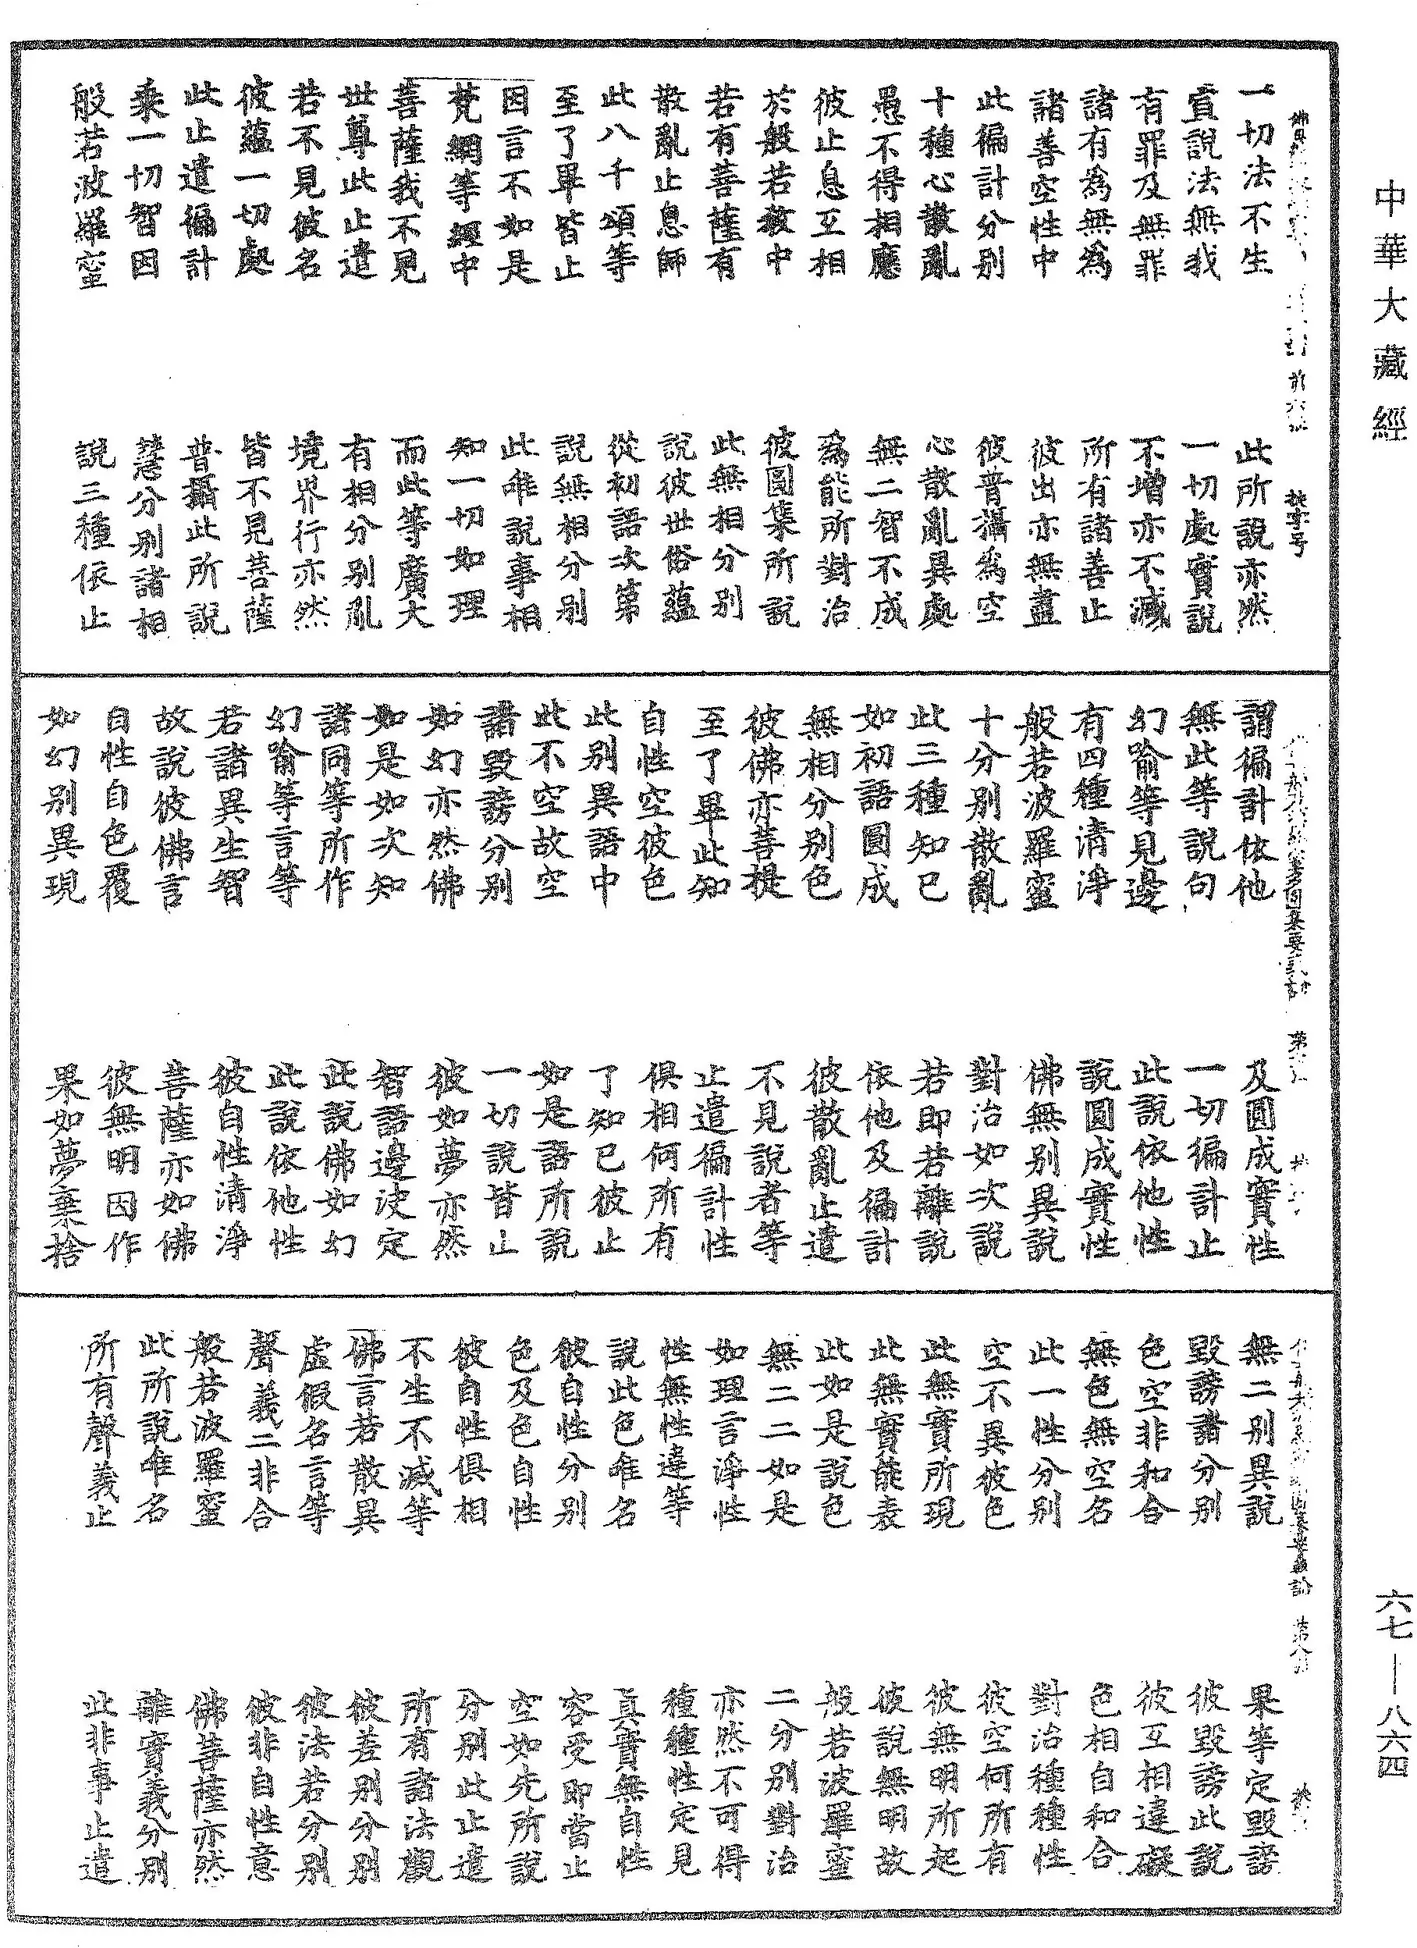 中華大藏經
一切法不生　此所說亦然
宣說法無我　一切處實說
有罪及無罪　不增亦不減
諸有為無為　所有諸善止
諸善空性中　彼出亦無盡
此徧計分別　彼普攝為空
十種心散亂　心散亂異處
愚不得相應　無二智不成
彼止息互相　為能所對治
於般若教中　彼圓集所說
若有菩薩有　此無相分別
散亂止息師　說彼世俗蘊
此八千頌等　從初語次第
至了畢皆止　說無相分別
因言不如是　此唯說事相
梵網等經中　知一切如理
菩薩我不見　而此等廣大
世尊此止遣　有相分別亂
若不見彼名　境界行亦然
彼蘊一切處　皆不見菩薩
此止遣徧計　普攝此所說
乘一切智因　慧分別諸相
般若波羅蜜　說三種依止
謂徧計依他　及圓成實性
無此等說句　一切徧計止
幻喻等見邊　此說依他性
有四種清淨　說圓成實性
般若波羅蜜　佛無別異說
十分別散亂　對治如次說
此三種知已　若即若離說
如初語圓成　依他及徧計
無相分別色　彼散亂止遣
彼佛亦菩提　不見說者等
至了畢此知　止遣徧計性
自性空彼色　俱相何所有
此別異語中　了知已彼止
此不空故空　如是語所說
諸毀謗分別　一切說皆止
如幻亦然佛　彼如夢亦然
如是如次知　智語邊決定
諸同等所作　此說佛如幻
幻喻等言等　此說依他性
若諸異生智　彼自性清淨
故說彼佛言　菩薩亦如佛
自性自色覆　彼無明因作
如幻別異現　果如夢棄捨
無二別異說　果等定毀謗
毀謗諸分別　彼毀謗此說
色空非和合　彼互相違礙
無色無空名　色相自和合
此一性分別　對治種種性
空不異彼色　彼空何所有
此無實所現　彼無明所起
此無實能表　彼說無明故
此如是說色　般若波羅蜜
無二二如是　二分別對治
如理言淨性　亦然不可得
性無性違等　種種性定見
說此色唯名　真實無自性
彼自性分別　容受即當止
色及色自性　空如先所說
彼自性俱相　分別此止遣
不生不滅等　所有諸法觀
佛言若散異　彼差別分別
虛假名言等　彼法若分別
聲義二非合　彼非自性意
般若波羅蜜　佛菩薩亦然
此所說唯名　離實義分別
所有聲義止　此非事止遣
六七—八六四